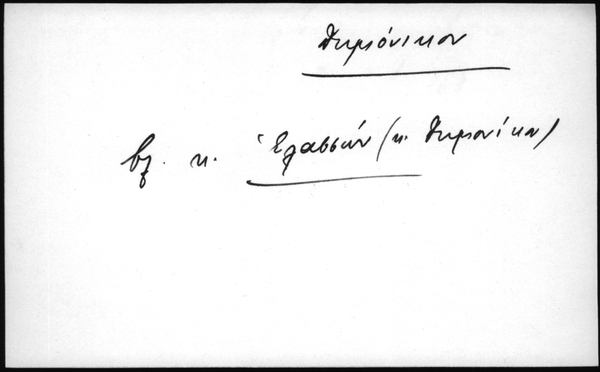 Δαμιόνικον
βλ. κ. Ἐλασσών (κ. Δαμιονίκον)